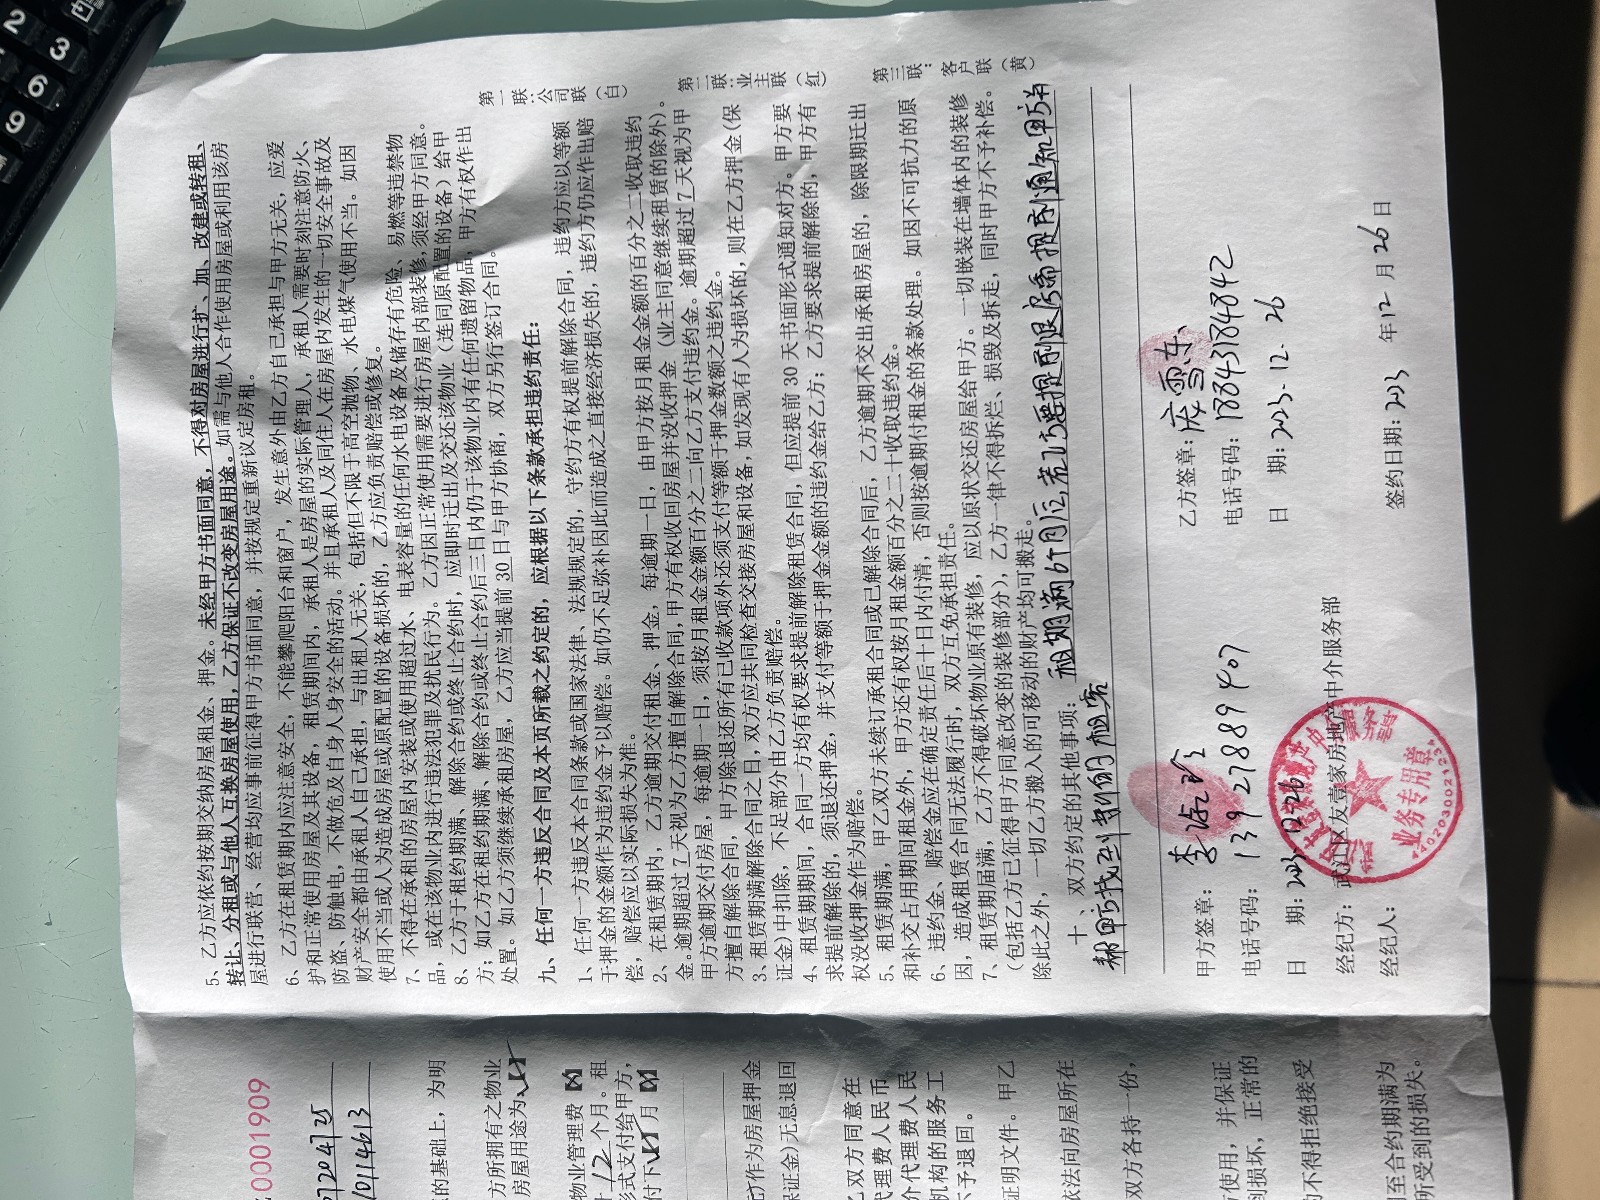 5、乙方应依约按期交纳房屋租金、押金。未经甲方书面同意，不得对房屋进行扩、加、改建或转租、
转让、分租或与他人互换房屋使用，乙方保证不改变房屋用途。如需与他人合作使用房屋或利用该房
屋进行联营、经营均应事前征得甲方书面同意，并按规定重新议定房租。
6、乙方在租赁期内应注意安全，不能攀爬阳台和窗户，发生意外由乙方自己承担与甲方无关，应爱
护和正常使用房屋及其设备，租赁期间内，承租人是房屋的实际管理人，承租人需要时刻注意防火、
防盗、防触电，不做危及自身人身安全的活动。并且承租人及同住人在房屋内发生的一切安全事故及
财产安全都由承租人自己承担，与出租人无关，包括但不限于高空抛物、水电煤气使用不当。如因
使用不当或人为造成房屋或原配置的设备损坏的，乙方应负责赔偿或修复。
7、不得在承租的房屋内安装或使用超过水、电表容量的任何水电设备及储存有危险、易燃等违禁物
品，或在该物业内进行违法犯罪及扰民行为。乙方因正常使用需要进行房屋内部装修，须经甲方同意。
8、乙方于租约期满、解除合约或终止合约时，应即时迁出及交还该物业（连同原配置的设备）给甲
方；如乙方在租约期满、解除合约或终止合约后三日内仍于该物业内有任何遗留物品，甲方有权作出
处置。如乙方须继续承租房屋，乙方应当提前30日与甲方协商，双方另行签订合同。
九、任何一方违反合同及本页所载之约定的，应根据以下条款承担违约责任：
1、任何一方违反本合同条款或国家法律、法规规定的，守约方有权提前解除合同，违约方应以等额
于押金的金额作为违约金予以赔偿。如仍不足弥补因此而造成之直接经济损失的，违约方仍应作出赔
偿，赔偿应以实际损失为准。
2、在租赁期内，乙方逾期交付租金、押金，每逾期一日，由甲方按月租金金额的百分之二收取违约
金。逾期超过7天视为乙方擅自解除合同，甲方有权收回房屋并没收押金（业主同意继续租赁的除外）。
甲方逾期交付房屋，每逾期一日，须按月租金金额百分之二向乙方支付违约金。逾期超过7天视为甲
方擅自解除合同，甲方除退还所有已收款项外还须支付等额于押金数额之违约金。
3、租赁期满解除合同之日，双方应共同检查交接房屋和设备，如发现有人为损坏的，则在乙方押金(保
证金)中扣除，不足部分由乙方负责赔偿。
4、租赁期期间，合同一方均有权要求提前解除租赁合同，但应提前30天书面形式通知对方。甲方要
求提前解除的，须退还押金，并支付等额于押金金额的违约金给乙方；乙方要求提前解除的，甲方有
权没收押金作为赔偿。
5、租赁期满，甲乙双方未续订承租合同或已解除合同后，乙方逾期不交出承租房屋的，除限期迁出
和补交占用期间租金外，甲方还有权按月租金额百分之二十收取违约金。
6、违约金、赔偿金应在确定责任后十日内付清，否则按逾期付租金的条款处理。如因不可抗力的原
因，造成租赁合同无法履行时，双方互免承担责任。
7、租赁期届满，乙方不得破坏物业原有装修，应以原状交还房屋给甲方。一切嵌装在墙体内的装修
（包括乙方已征得甲方同意改变的装修部分），乙方一律不得拆烂、损毁及拆走，同时甲方不予补偿。
除此之外，一切乙方搬入的可移动的财产均可搬走。
十、双方约定的其他事项：租期满6个月后,若乙方要提前退房需提前通知甲方,并
找到新的租客
甲方签章：
电话号码：13927889407
日 期：2023.12.26
经纪方：武江区友壹家房地产中介服务部
经纪人：
乙方签章：庞雪东
电话号码：18343184842
日 期：2023.12.26
签约日期：2023 年12 月26日
第一联：公司联（白）
第二联：业主联（红）
第三联：客户联（黄）
业务专用章
4402030021234
0001909
的基础上，为明
方所拥有之物业
房屋用途为
物业管理费
12个月。租
形式支付给甲方，
月
作为房屋押金
保证金)无息退回
乙双方同意在
代理费人民币
介代理费人民
机构的服务工
不予退回。
证明文件。甲乙
依法向房屋所在
双方各持一份，
使用，并保证
损坏，正常的
不得拒绝接受
至合约期满为
所受到的损失。
2
3
6
9